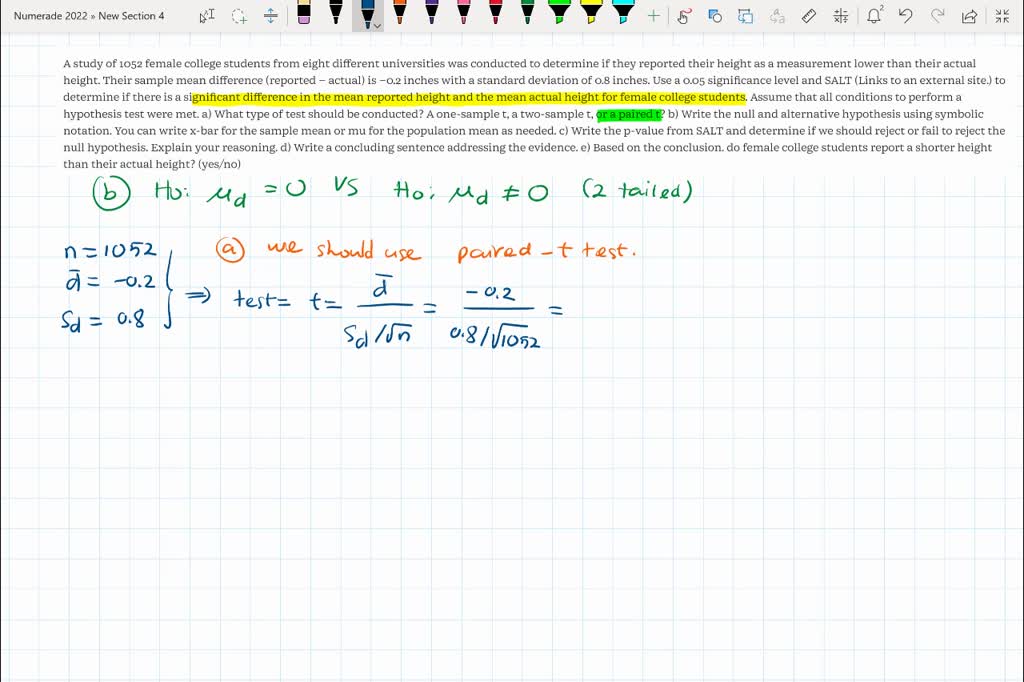 Numerade 2022 » New Section 4
A study of 1052 female college students from eight different universities was conducted to determine if they reported their height as a measurement lower than their actual
height. Their sample mean difference (reported – actual) is −0.2 inches with a standard deviation of 0.8 inches. Use a 0.05 significance level and SALT (Links to an external site.) to
determine if there is a significant difference in the mean reported height and the mean actual height for female college students. Assume that all conditions to perform a
hypothesis test were met. a) What type of test should be conducted? A one-sample t, a two-sample t, or a paired t? b) Write the null and alternative hypothesis using symbolic
notation. You can write x-bar for the sample mean or mu for the population mean as needed. c) Write the p-value from SALT and determine if we should reject or fail to reject the
null hypothesis. Explain your reasoning. d) Write a concluding sentence addressing the evidence. e) Based on the conclusion. do female college students report a shorter height
than their actual height? (yes/no)
(b) Ho: μd = 0 VS Ho: μd ≠ 0 (2 tailed)
n = 1052 (a) we should use paired - t test.
d̄ = -0.2 ⇒ test = t = d̄ / (Sd/√n) = -0.2 / (0.8/√1052) =
Sd = 0.8